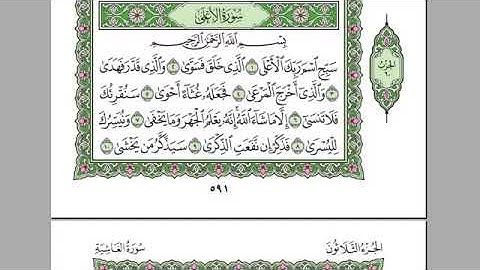 سُورَةُ الأَعْلَى
بِسْمِ اللَّهِ الرَّحْمَٰنِ الرَّحِيمِ
سَبِّحِ اسْمَ رَبِّكَ الْأَعْلَى ١ الَّذِي خَلَقَ فَسَوَّىٰ ٢ وَالَّذِي قَدَّرَ فَهَدَىٰ
٣ وَالَّذِي أَخْرَجَ الْمَرْعَىٰ ٤ فَجَعَلَهُ غُثَاءً أَحْوَىٰ ٥ سَنُقْرِئُكَ
فَلَا تَنسَىٰ ٦ إِلَّا مَا شَاءَ اللَّهُ إِنَّهُ يَعْلَمُ الْجَهْرَ وَمَا يَخْفَىٰ ٧ وَنُيَسِّرُكَ
لِلْيُسْرَىٰ ٨ فَذَكِّرْ إِن نَّفَعَتِ الذِّكْرَىٰ ٩ سَيَذَّكَّرُ مَن يَخْشَىٰ ١٠
الحزب
٦٠
٥٩١
الجُزءُ الثَّلَاثُونَ
سُورَةُ الغَاشِيَةِ